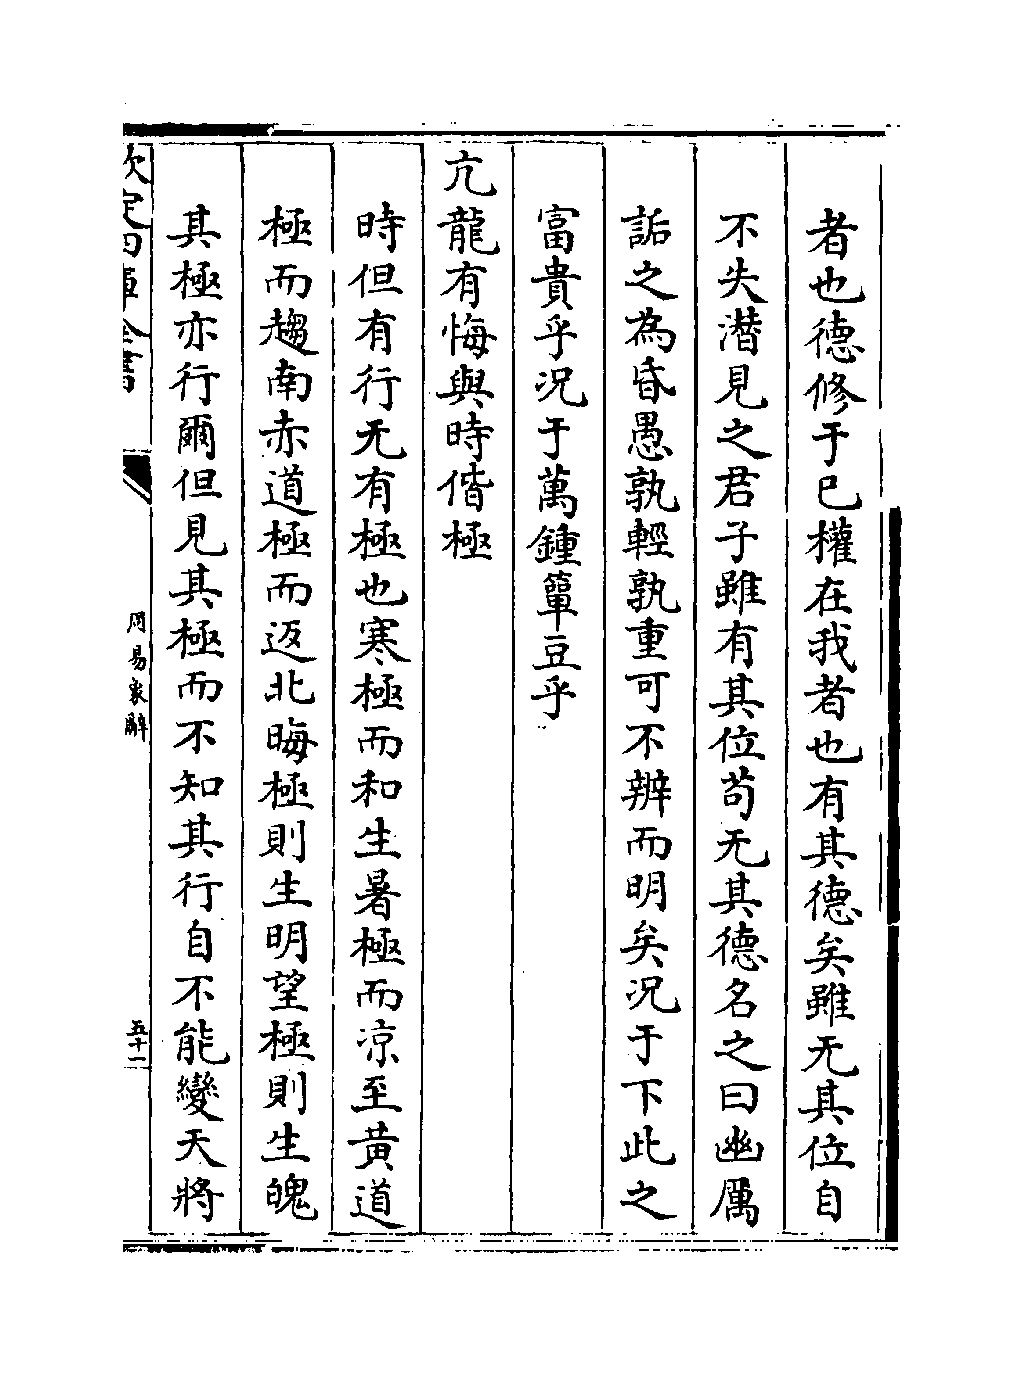 者也德修于已權在我者也有其德矣雖无其位自
不失潛見之君子雖有其位苟无其德名之曰幽厲
詬之為昏愚孰輕孰重可不辨而明矣況于下此之
富貴乎況于萬鍾簞豆乎
亢龍有悔與時偕極
時但有行无有極也寒極而和生暑極而凉至黃道
極而趨南赤道極而返北晦極則生明望極則生魄
其極亦行爾但見其極而不知其行自不能變天將
欽定四庫全書
周易象辭
五十一